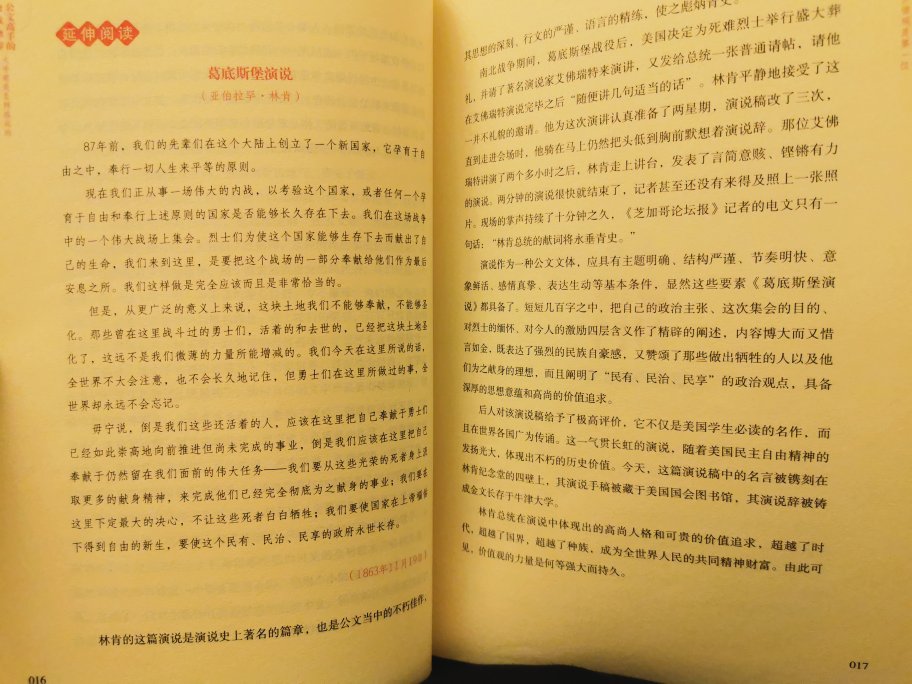 延伸阅读
葛底斯堡演说
（亚伯拉罕·林肯）
87年前，我们的先辈们在这个大陆上创立了一个新国家，它孕育于自
由之中，奉行一切人生来平等的原则。
现在我们正从事一场伟大的内战，以考验这个国家，或者任何一个孕
育于自由和奉行上述原则的国家是否能够长久存在下去。我们在这场战争
中的一个伟大战场上集会。烈士们为使这个国家能够生存下去而献出了自
己的生命，我们来到这里，是要把这个战场的一部分奉献给他们作为最后
安息之所。我们这样做是完全应该而且是非常恰当的。
但是，从更广泛的意义上来说，这块土地我们不能够奉献，不能够圣
化。那些曾在这里战斗过的勇士们，活着的和去世的，已经把这块土地圣
化了，这远不是我们微薄的力量所能增减的。我们今天在这里所说的话，
全世界不大会注意，也不会长久地记住，但勇士们在这里所做过的事，全
世界却永远不会忘记。
毋宁说，倒是我们这些还活着的人，应该在这里把自己奉献于勇士们
已经如此崇高地向前推进但尚未完成的事业，倒是我们应该在这里把自己
奉献于仍然留在我们面前的伟大任务——我们要从这些光荣的死者身上汲
取更多的献身精神，来完成他们已经完全彻底为之献身的事业；我们要在
这里下定最大的决心，不让这些死者白白牺牲；我们要使国家在上帝福佑
下得到自由的新生，要使这个民有、民治、民享的政府永世长存。
（1863年11月19日）
林肯的这篇演说是演说史上著名的篇章，也是公文当中的不朽佳作，
016
其思想的深刻、行文的严谨、语言的精练，使之彪炳青史。
南北战争期间，葛底斯堡战役后，美国决定为死难烈士举行盛大葬
礼，并请了著名演说家艾佛瑞特来演讲，又发给总统一张普通请帖，请他
在艾佛瑞特演说完毕之后“随便讲几句适当的话”。林肯平静地接受了这
一并不礼貌的邀请。他为这次演讲认真准备了两星期，演说稿改了三次，
直到走进会场时，他骑在马上仍然把头低到胸前默想着演说辞。那位艾佛
瑞特讲演了两个多小时之后，林肯走上讲台，发表了言简意赅、铿锵有力
的演说。两分钟的演说很快就结束了，记者甚至还没有来得及照上一张照
片。现场的掌声持续了十分钟之久，《芝加哥论坛报》记者的电文只有一
句话：“林肯总统的献词将永垂青史。”
演说作为一种公文文体，应具有主题明确、结构严谨、节奏明快、意
象鲜活、感情真挚、表达生动等基本条件，显然这些要素《葛底斯堡演
说》都具备了。短短几百字之中，把自己的政治主张、这次集会的目的、
对烈士的缅怀、对今人的激励四层含义作了精辟的阐述，内容博大而又惜
言如金，既表达了强烈的民族自豪感，又赞颂了那些做出牺牲的人以及他
们为之献身的理想，而且阐明了“民有、民治、民享”的政治观点，具备
深厚的思想意蕴和高尚的价值追求。
后人对该演说稿给予了极高评价，它不仅是美国学生必读的名作，而
且在世界各国广为传诵。这一气贯长虹的演说，随着美国民主自由精神的
发扬光大，体现出不朽的历史价值。今天，这篇演说稿中的名言被镌刻在
林肯纪念堂的四壁上，其演说手稿被藏于美国国会图书馆，其演说辞被铸
成金文长存于牛津大学。
林肯总统在演说中体现出的高尚人格和可贵的价值追求，超越了时
代，超越了国界，超越了种族，成为全世界人民的共同精神财富。由此可
见，价值观的力量是何等强大而持久。
017